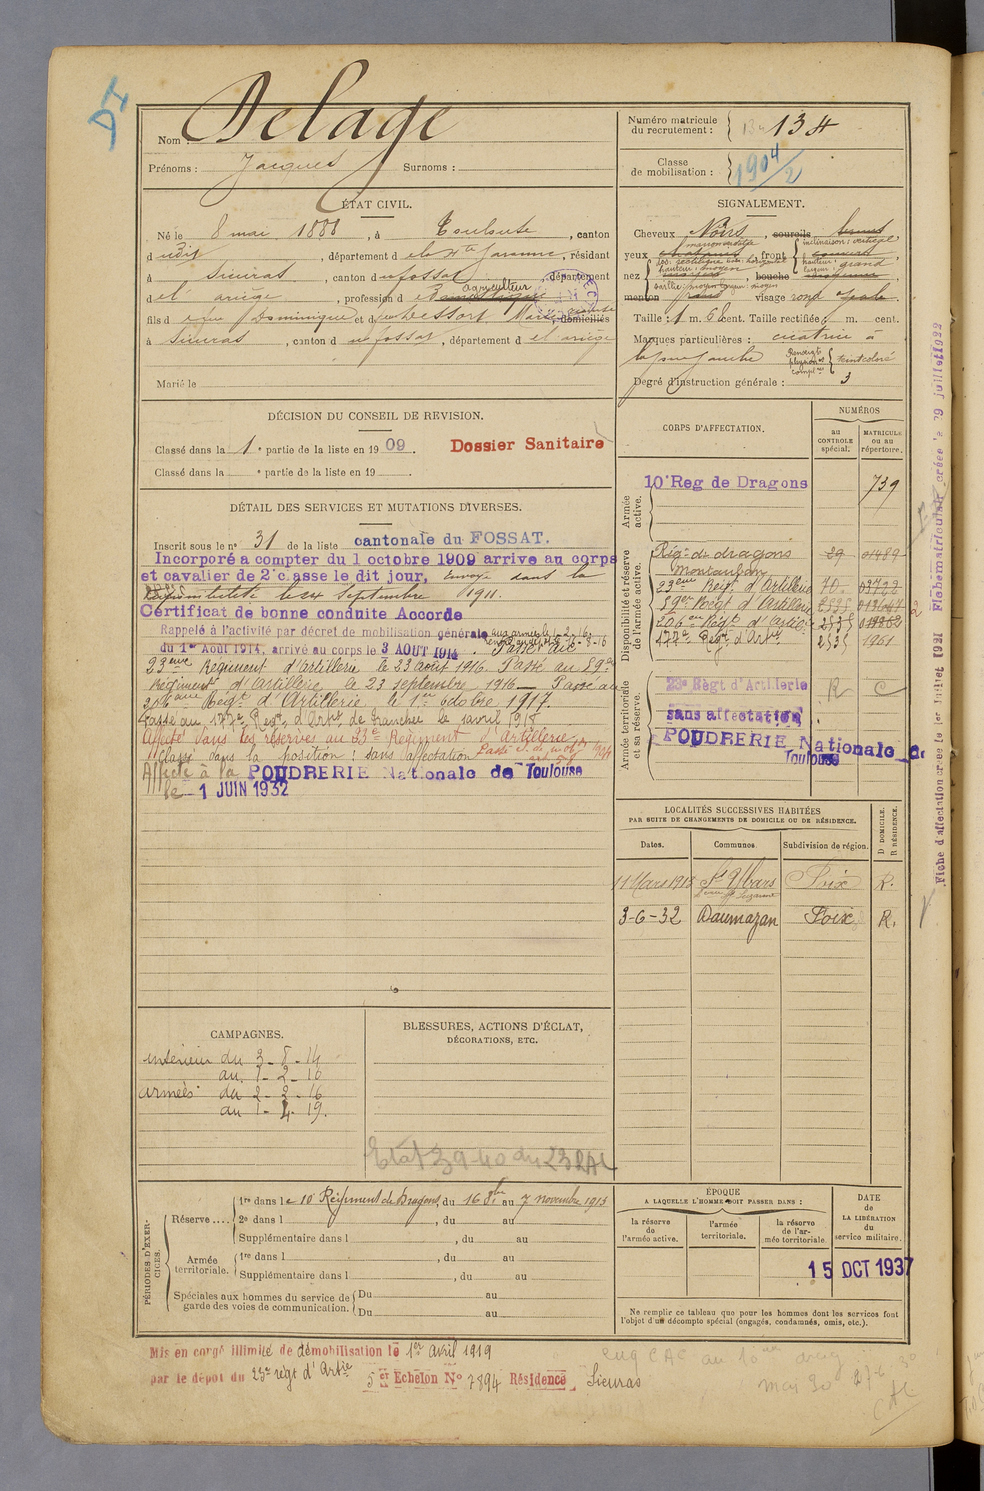 DI
Nom : Delage
Prénoms : Jacques Surnoms :
Numéro matricule du recrutement : 134
Classe de mobilisation : 1904/2
ÉTAT CIVIL.
Né le 8 mai 1888, à Toulouse, canton
dudit, département de la Hte Garonne, résidant
à Sieuras, canton du fossat, département
de l'ariège, profession de agriculteur
fils de feu Dominique et de Dessort Marie, domiciliés
à Sieuras, canton du fossat, département de l'ariège
Marié le
SIGNALEMENT.
Cheveux Noirs, sourcils
yeux marron verdâtre, front inclinaison : vertical
hauteur : grand
nez dos : rectiligne base : horizontale
hauteur : moyen
saillie : moyen largeur : moyen, bouche
menton rond visage rond
Taille : 1 m. 6 cent. Taille rectifiée : m. cent.
Marques particulières : cicatrice à
la joue gauche
Renseigts physion. complres teint coloré
Degré d'instruction générale : 3
DÉCISION DU CONSEIL DE REVISION.
Classé dans la 1e partie de la liste en 1909. Dossier Sanitaire
Classé dans la e partie de la liste en 19
DÉTAIL DES SERVICES ET MUTATIONS DIVERSES.
Inscrit sous le n° 31 de la liste cantonale du FOSSAT.
Incorporé a compter du 1 octobre 1909 arrive au corps
et cavalier de 2e classe le dit jour, envoyé dans la
disponibilité le 24 Septembre 1911.
Certificat de bonne conduite Accorde
Rappelé à l'activité par décret de mobilisation générale aux armées le 1-2-16
du 1er Aout 1914, arrivé au corps le 3 AOUT 1914. Passé au
23eme Régiment d'Artillerie le 23 août 1916. Passé au 59me
Régiment d'Artillerie le 23 septembre 1916 _ Passé au
206eme Regt d'Artillerie le 1er octobre 1917.
Passé au 177e Regt d'Artie de tranchée le 1 avril 1918
Affecté dans les réserves au 23e Régiment d'Artillerie
Classé dans la position : sans affectation
Affecté à la POUDRERIE Nationale de Toulouse
le 1 JUIN 1932
CORPS D'AFFECTATION.
NUMÉROS
au CONTROLE spécial.
MATRICULE ou au répertoire.
Armée active.
10e Reg de Dragons 739
Disponibilité et réserve de l'armée active.
Régt de dragons 29 01489
Montauban
23eme Regt d'Artillerie 70
59er Regt d'Artillerie
206er Regt d'Artie
177e Regt d'Art. 1961
Armée territoriale et sa réserve.
23e Règt d'Artillerie R C
sans affectation
POUDRERIE Nationale de
Toulouse
LOCALITÉS SUCCESSIVES HABITÉES
PAR SUITE DE CHANGEMENTS DE DOMICILE OU DE RÉSIDENCE.
Dates. Communes. Subdivision de région. D DOMICILE. R RÉSIDENCE.
11 Mars 1913 St Ybars Foix R.
3-6-32 Daumazan Foix R.
CAMPAGNES.
intérieur du 3-8-14
au 1-2-16
armées du 2-2-16
au 1-4-19.
BLESSURES, ACTIONS D'ÉCLAT,
DÉCORATIONS, ETC.
Etat 39-40 du
PÉRIODES D'EXERCICES.
Réserve.... 1re dans le 10 Régiment de Dragons, du 16 8bre au 7 novembre 1913
2e dans l, du au
Supplémentaire dans l, du au
Armée territoriale. 1re dans l, du au
Supplémentaire dans l, du au
Spéciales aux hommes du service de garde des voies de communication. Du au
Du au
ÉPOQUE
A LAQUELLE L'HOMME DOIT PASSER DANS :
la réserve de l'armée active.
l'armée territoriale.
la réserve de l'armée territoriale
DATE DE LA LIBÉRATION du service militaire.
15 OCT 1937
Ne remplir ce tableau que pour les hommes dont les services font
l'objet d'un décompte spécial (engagés, condamnés, omis, etc.).
Mis en congé illimité de démobilisation le 1er avril 1919
par le dépot du 23e régt d'Artie 5e Echelon No 7894 Résidence Sieuras
mai 30
Fiche d'affectation créée le 1er Juillet 1921 Fiche matriculaire créée le 29 juillet 1922